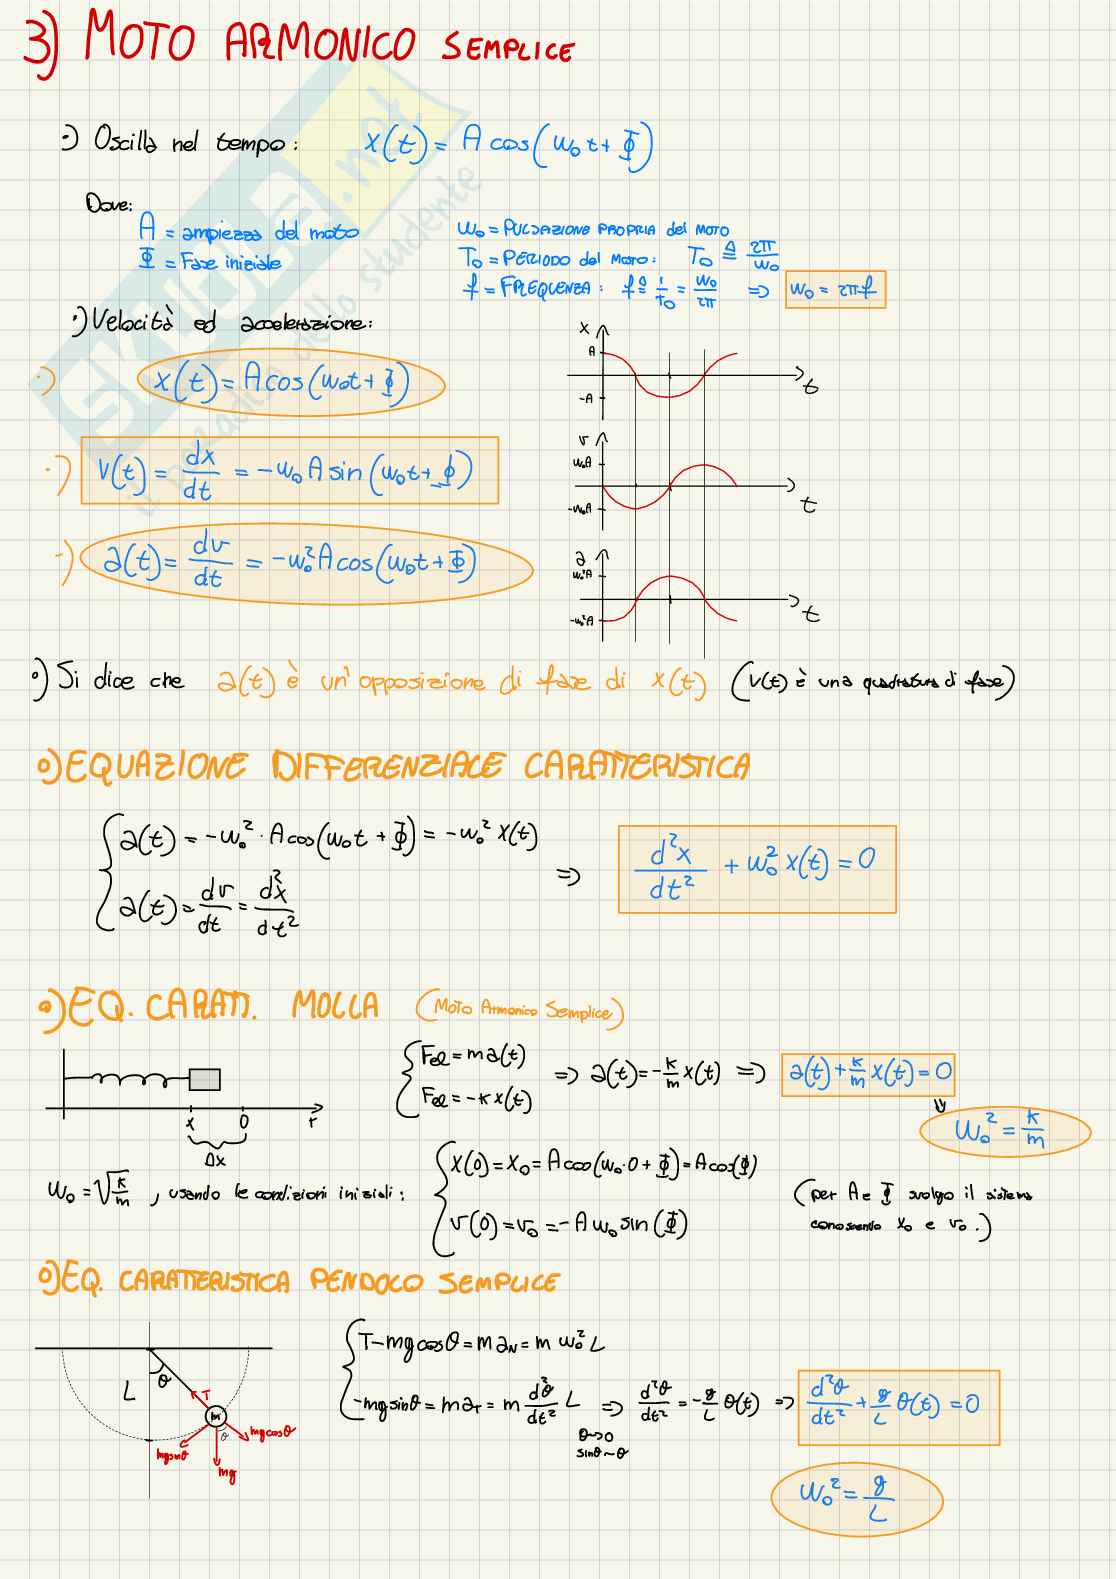 3) MOTO ARMONICO SEMPLICE
·) Oscilla nel tempo: x(t) = A cos(ω₀t + Φ)
Dove:
A = ampiezza del moto
Φ = Fase iniziale
ω₀ = PULSAZIONE PROPRIA del MOTO
T₀ = PERIODO del MOTO: T₀ ≜ 2π/ω₀
f = FREQUENZA: f ≜ 1/T₀ = ω₀/2π => ω₀ = 2πf
·) Velocità ed accelerazione:
·) x(t) = A cos(ω₀t + Φ)
·) v(t) = dx/dt = -ω₀ A sin(ω₀t + Φ)
·) a(t) = dv/dt = -ω₀² A cos(ω₀t + Φ)
x
A
-A
t
v
ω₀A
-ω₀A
t
a
ω₀²A
-ω₀²A
t
•) Si dice che a(t) è un'opposizione di fase di x(t) (v(t) è una quadratura di fase)
•) EQUAZIONE DIFFERENZIALE CARATTERISTICA
a(t) = -ω₀² · A cos(ω₀t + Φ) = -ω₀² x(t)
a(t) = dv/dt = d²x/dt²
=> d²x/dt² + ω₀² x(t) = 0
•) EQ. CARATT. MOLLA (Moto Armonico Semplice)
x 0 r
Δx
Fel = m a(t)
Fel = -k x(t)
=> a(t) = -k/m x(t) => a(t) + k/m x(t) = 0
⇓
ω₀² = k/m
ω₀ = √k/m , usando le condizioni iniziali:
x(0) = x₀ = A cos(ω₀·0 + Φ) = A cos(Φ)
v(0) = v₀ = -A ω₀ sin(Φ)
(per A e Φ svolgo il sistema
conoscendo x₀ e v₀.)
•) EQ. CARATTERISTICA PENDOLO SEMPLICE
L
θ
T
m
θ
mg cosθ
mg sinθ
mg
T - mg cosθ = m aN = m ω₀² L
-mg sinθ = m aT = m d²θ/dt² L => d²θ/dt² = -g/L θ(t) => d²θ/dt² + g/L θ(t) = 0
θ→0
sinθ ~ θ
ω₀² = g/L
SKUOLA.net
il paradiso dello studente